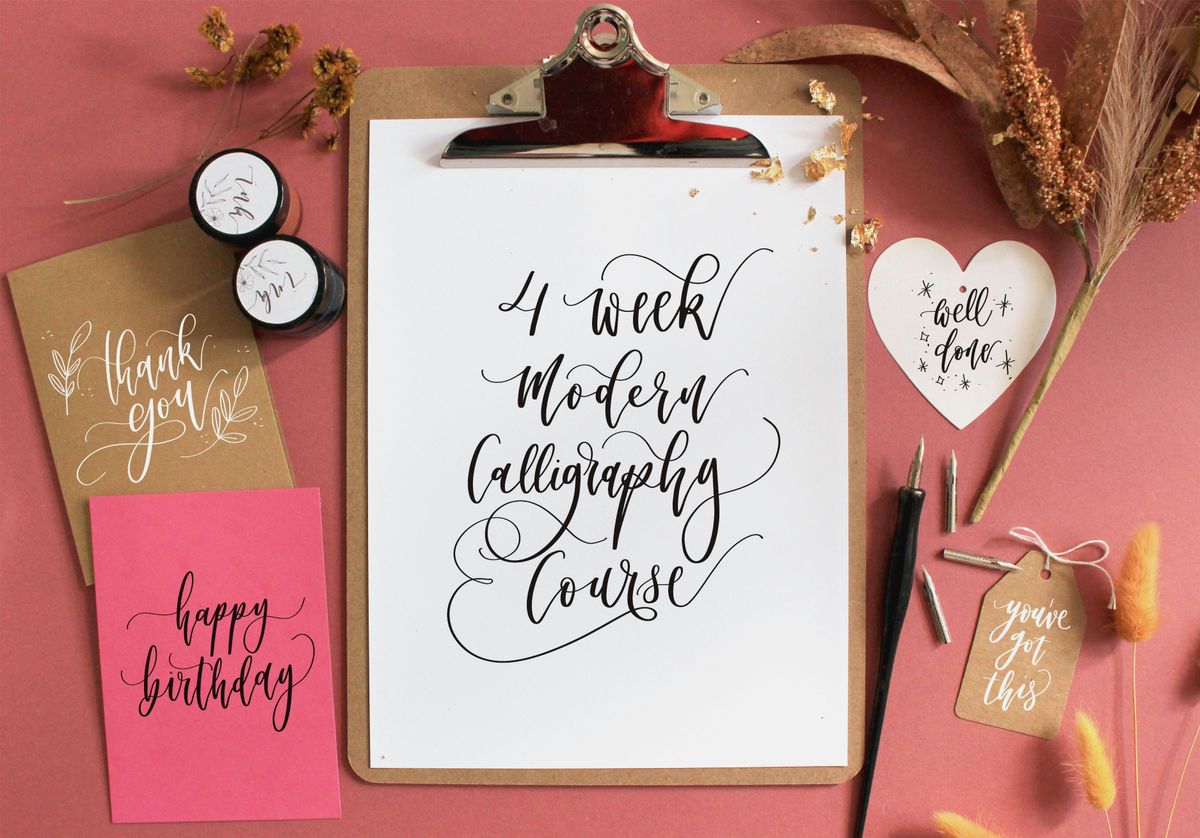 4 week
Modern
Calligraphy
Course
thank
you
happy
birthday
ink
ink
well
done
you've
got
this